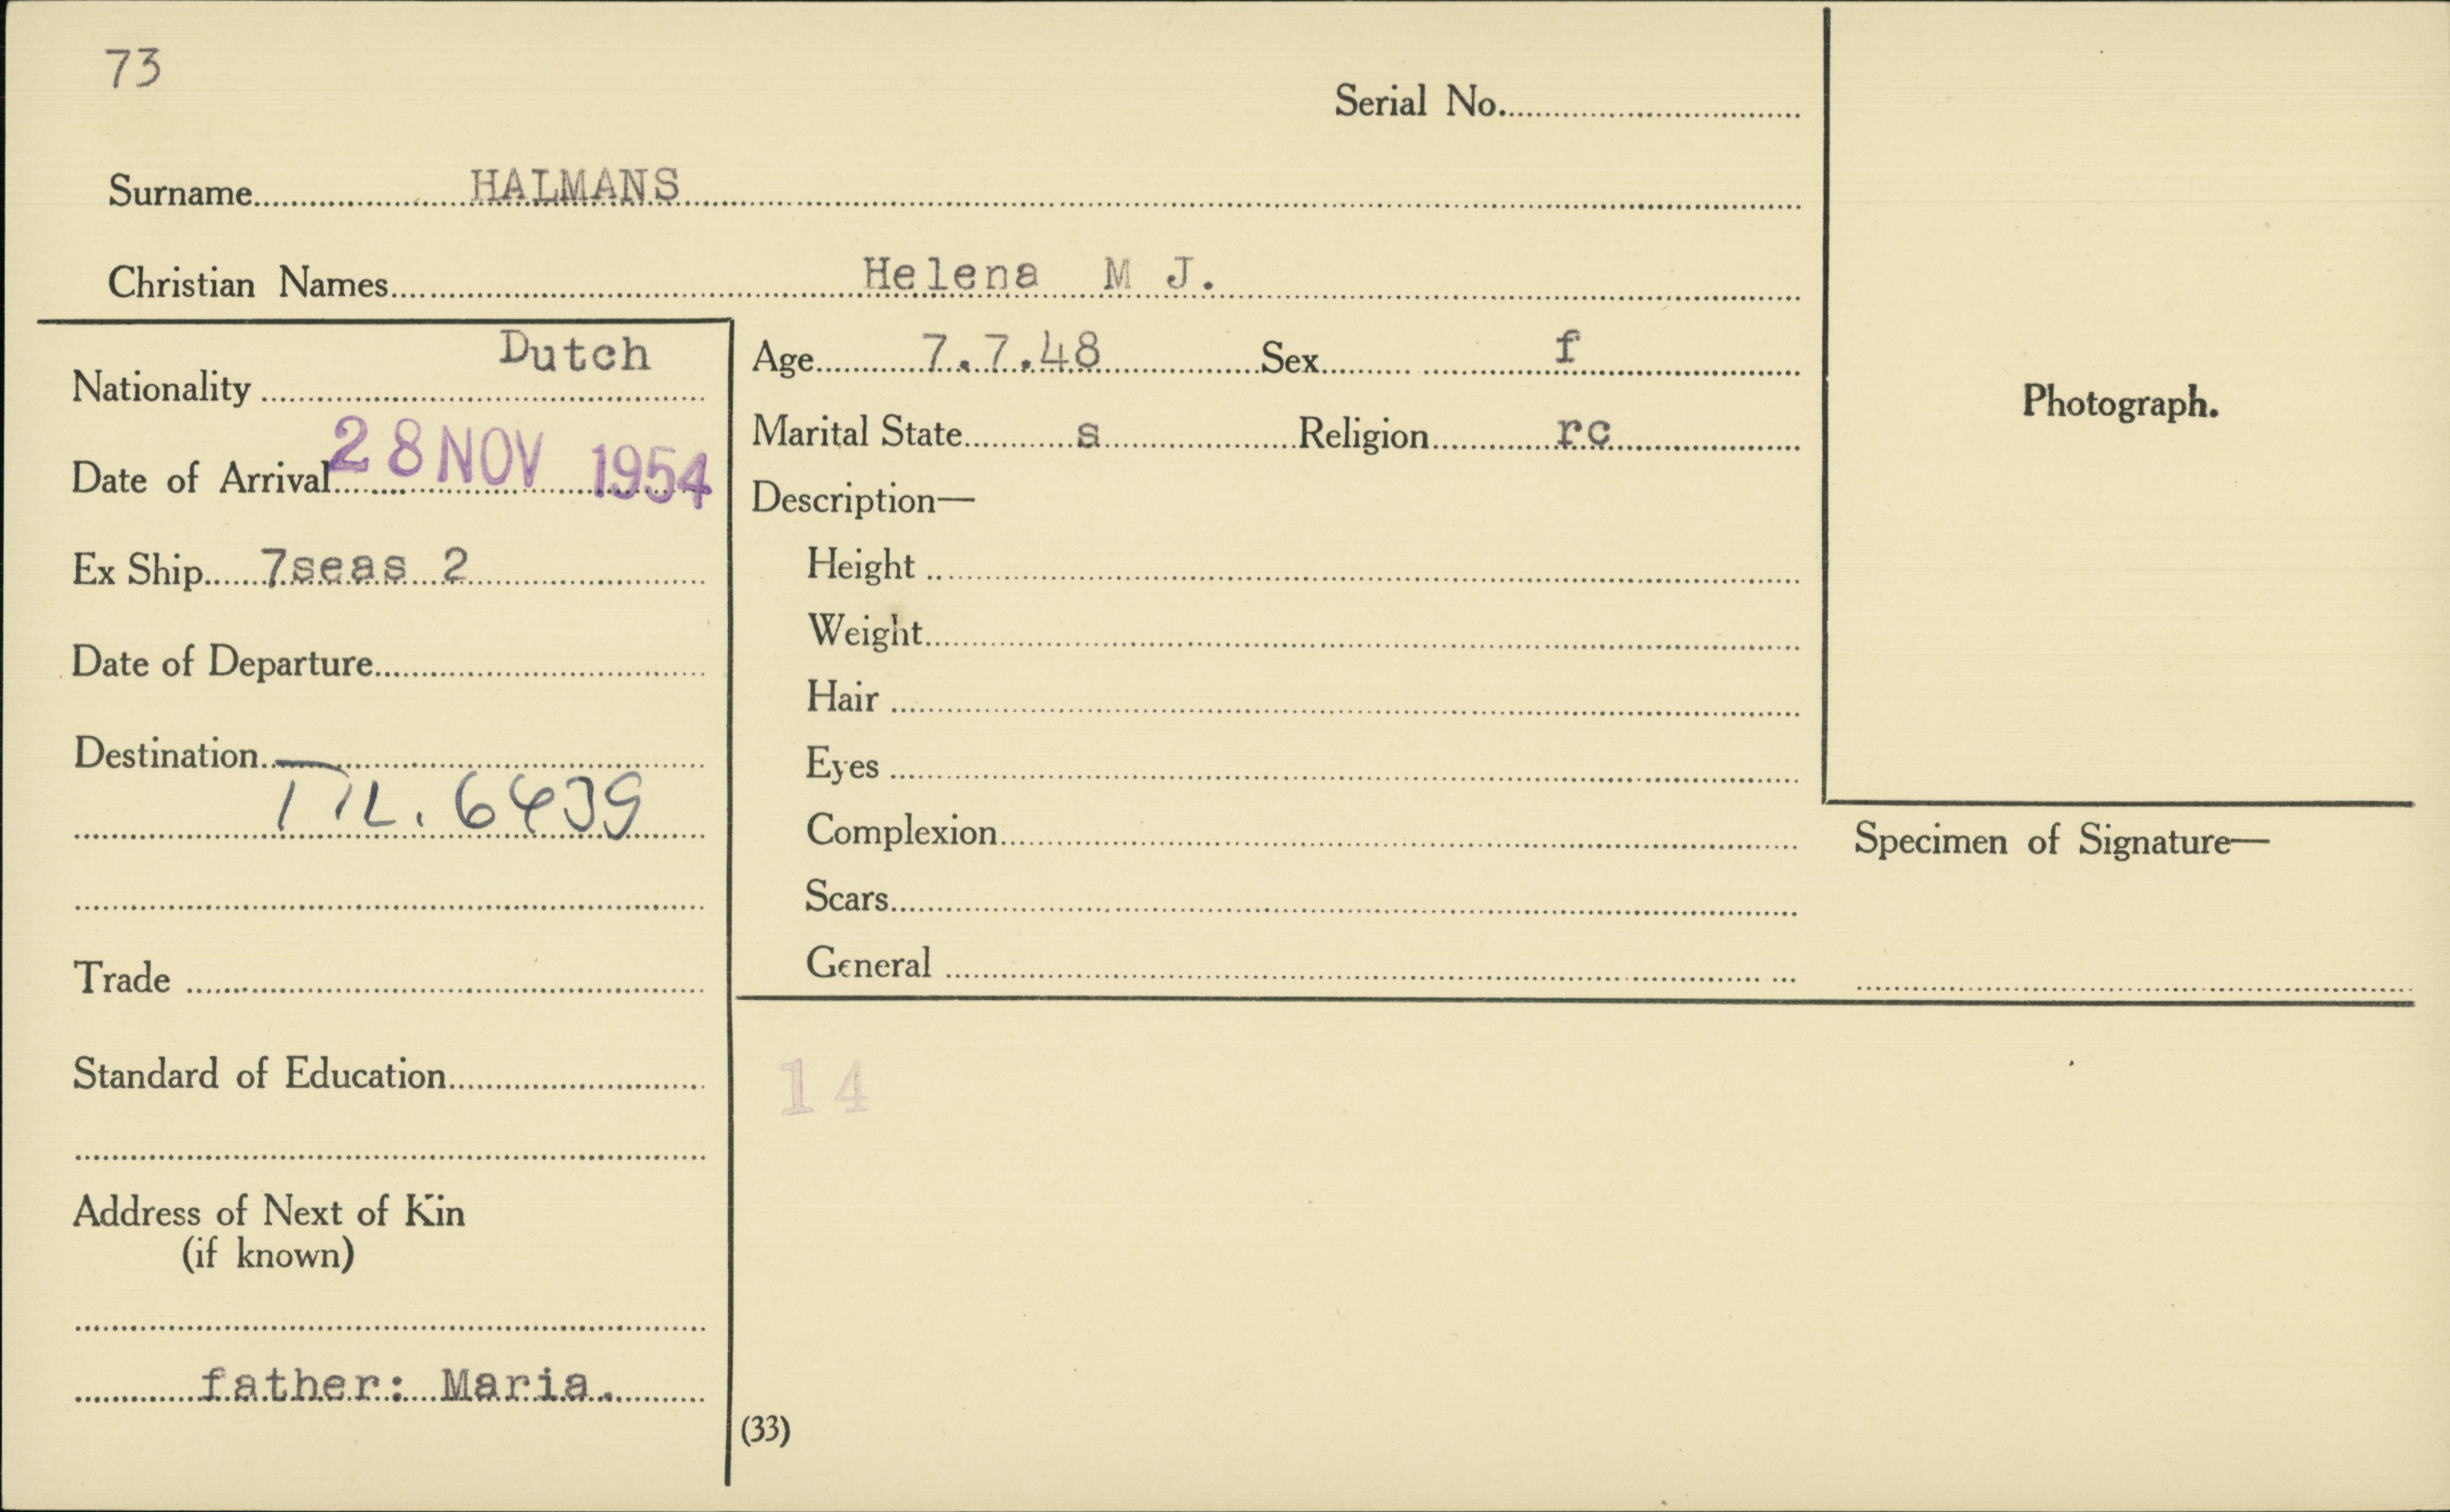 73
Serial No.
Surname HALMANS
Christian Names Helena M J.
Nationality Dutch
Date of Arrival 28 NOV 1954
Ex Ship 7seas 2
Date of Departure
Destination
6439
Trade
Standard of Education
Address of Next of Kin
(if known)
father: Maria.
Age 7.7.48 Sex f
Marital State s Religion rc
Description—
Height
Weight
Hair
Eyes
Complexion
Scars
General
14
(33)
Photograph.
Specimen of Signature—